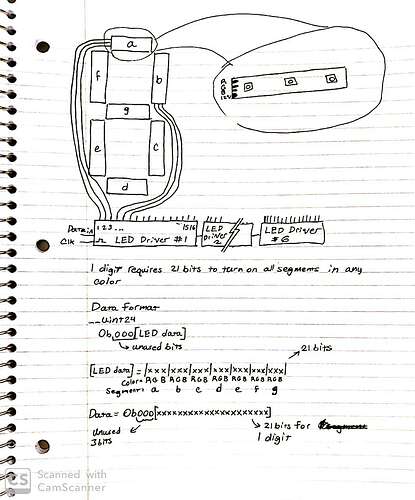 a
f
b
g
e
c
d
R
G
B
12V
Data in
Clk
1 2 3 ... 15 16
LED Driver #1
LED
Driver
2
LED Driver
#6
1 digit requires 21 bits to turn on all segments in any
color
Data Format
__uint24
0b,000[LED data]
unused bits
21 bits
[LED data] = [xxx|xxx|xxx|xxx|xxx|xxx|xxx]
Color= RGB RGB RGB RGB RGB RGB RGB
Segment= a b c d e f g
Data = 0b000[xxxxxxxxxxxxxxxxxxxxx]
Unused
3 bits
21 bits for
1 digit
CS
Scanned with
CamScanner